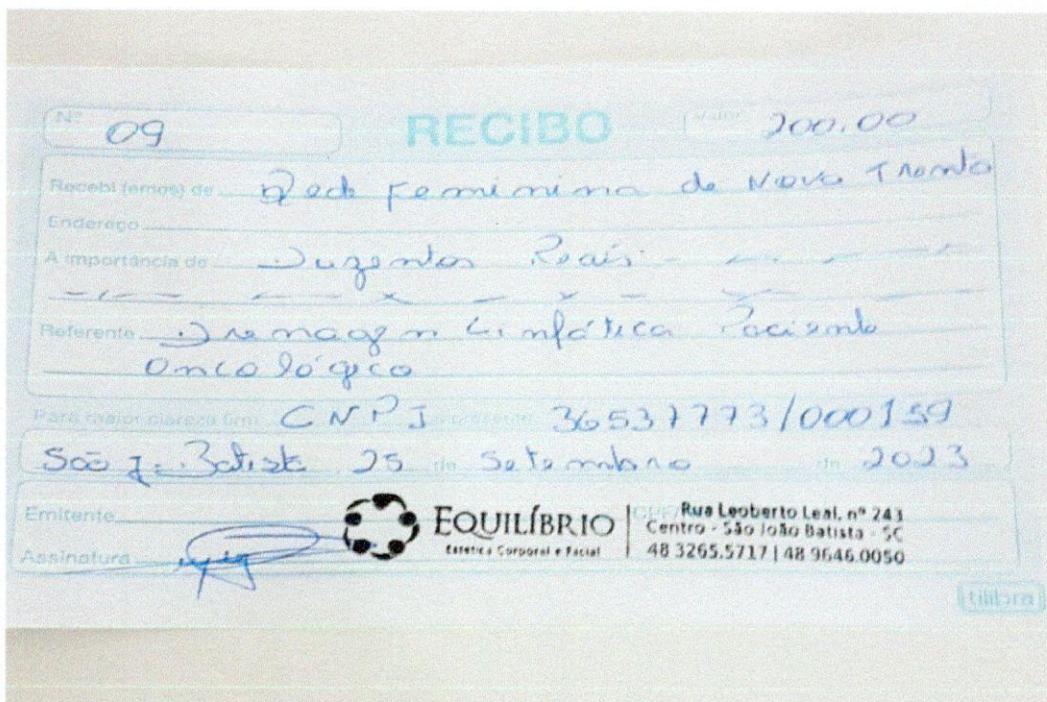 Nº 09 RECIBO Valor 200,00
Recebi (emos) de Rede Feminina de Nova Trento
Endereço
A importância de Duzentos Reais
Referente Drenagem Linfática Paciente
Oncológico
Para maior clareza firm CNPJ o presente 36537773/000159
São J. Batista 25 de Setembro de 2023
Emitente
EQUILÍBRIO
Estética Corporal e Facial
Rua Leoberto Leal, nº 243
Centro - São João Batista - SC
48 3265.5717 | 48 9646.0050
Assinatura
tilibra